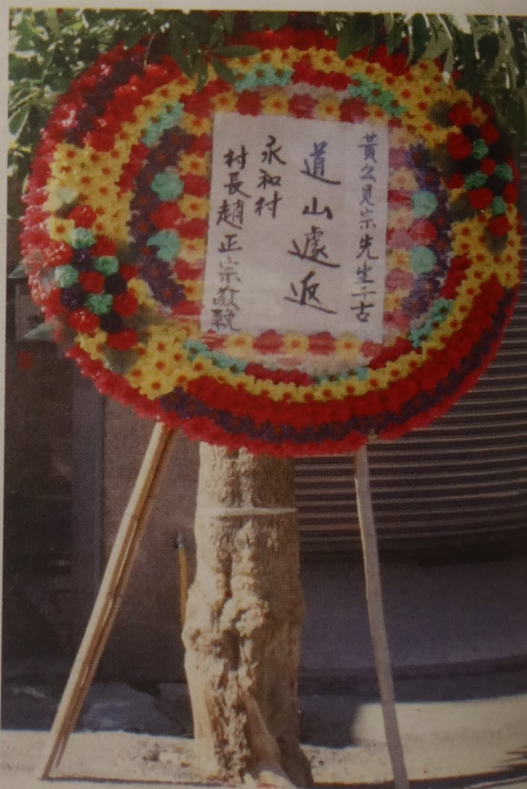 黃公見宗先生千古
道山遽返
永和村
村長趙正宗敬輓